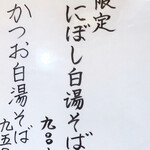 限定
にぼし白湯そば
九〇
かつお白湯そば
九五